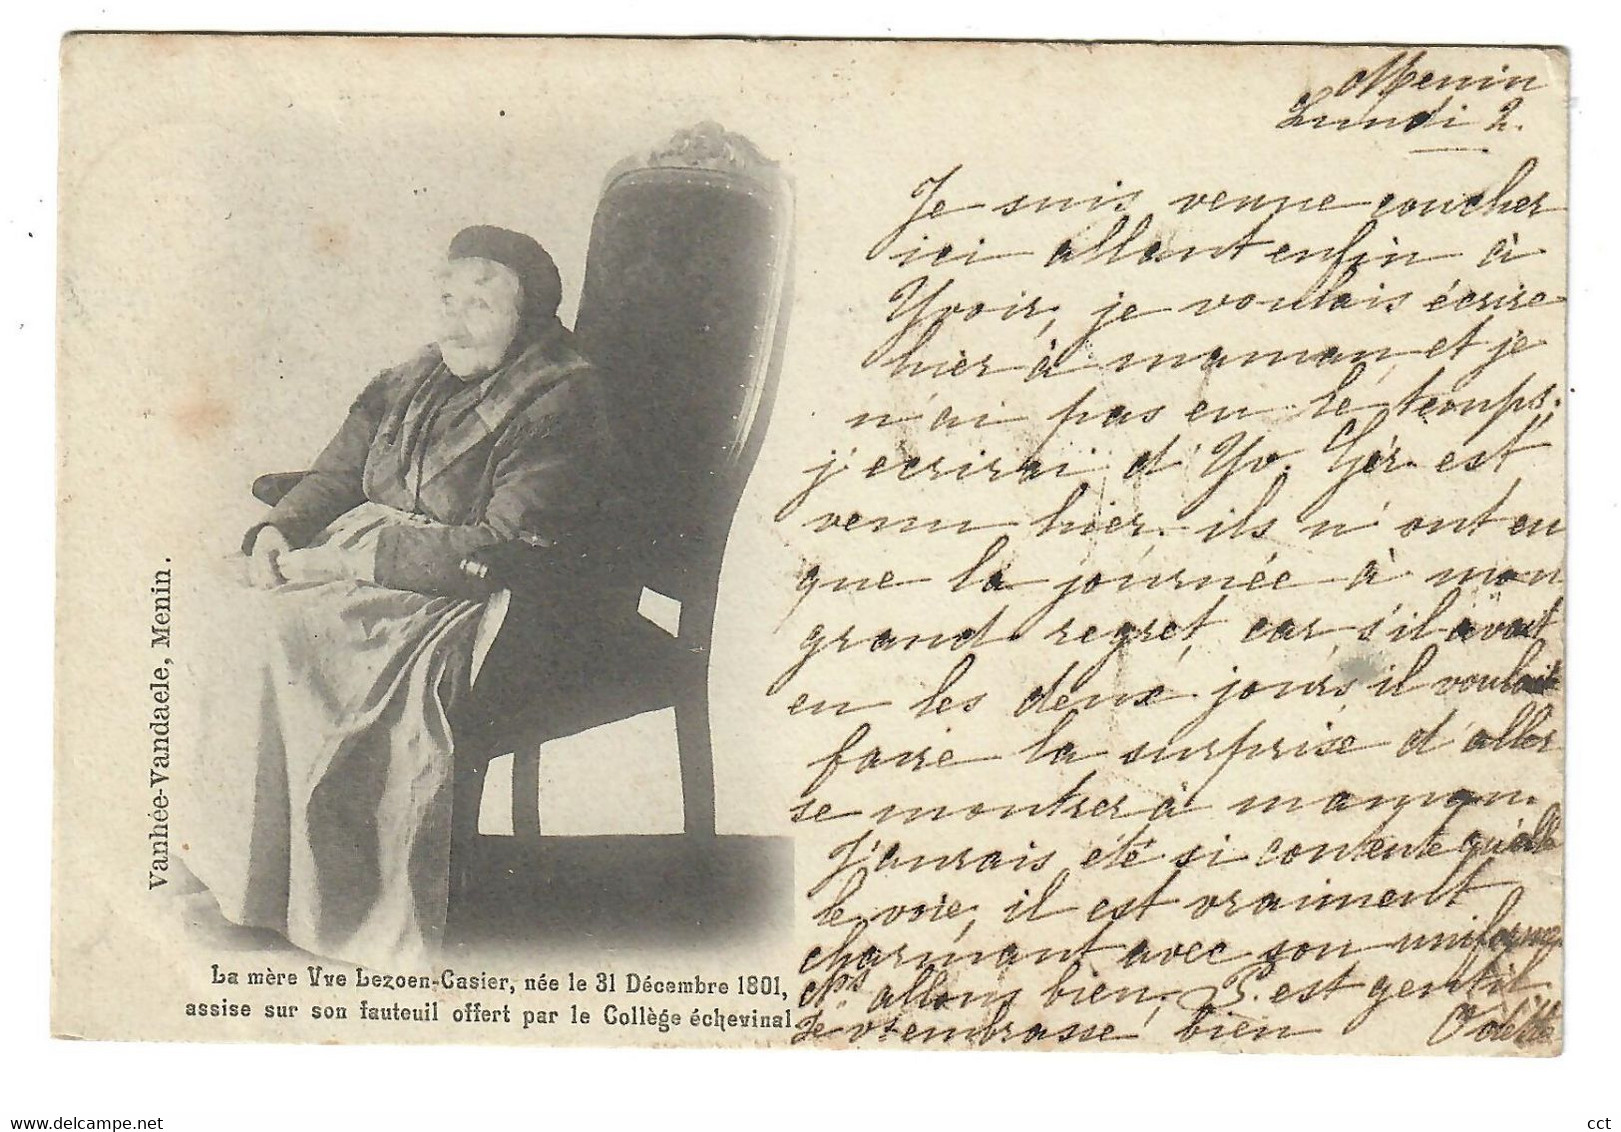 Menin
Lundi 2.
Je suis venue coucher
ici allant enfin à
Yvoir, je voulais écrire
hier à maman, et je
n'ai pas eu le temps.
j'ecrirai d'Yv. Gér. est
venu hier. ils n'ont eu
que la journée à mon
grand regret, car, s'il avait
eu les deux jours, il voulait
faire la surprise d'aller
se montrer à maman.
J'aurais été si contente qu'elle
le voie, il est vraiment
charmant avec son uniforme
allons bien, P. est gentil
Je vs embrasse bien Odette
Vanhée-Vandaele, Menin.
La mère Vve Lezoen-Casier, née le 31 Décembre 1801,
assise sur son fauteuil offert par le Collège échevinal.
delcampe.net
cct